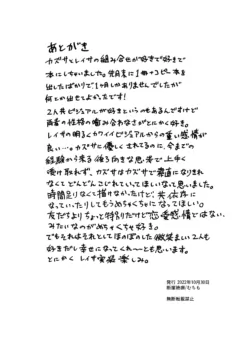 あとがき
カズサとレイサの組み合せが好きで好きで
本にしちゃいました。先月末に1冊+コピー本を
出したばかりで1ヶ月しかありませんでしたが
何とか出せてよかったです!
2人共ビジュアルが好きというのもあるんですけど
両者の性格の噛み合わなさがとにかく好き。
レイサの明るくカワイイビジュアルからの重い感情が
良い…。カズサに優しくされてるのに、今までの
経験から来る後ろ向きな思考で上手く
受け取れず、カズサはカズサで素直になりきれ
なくてどんどんこじれていってほしいなて思いました。
時間足りなくて描けないけど、共依存に
なっていたりしてもうめちゃくちゃになってほしい。
友だちよりちょっと特別だけど恋愛感情ではない、
みたいなのがめちゃくちゃ好き。
でもそれはそれとしてほのぼのした微笑ましい2人も
好きだし幸せになってくれ〜とも思います。
とにかく レイサ実装 楽しみ。
発行 2022年10月30日
無断転載禁止